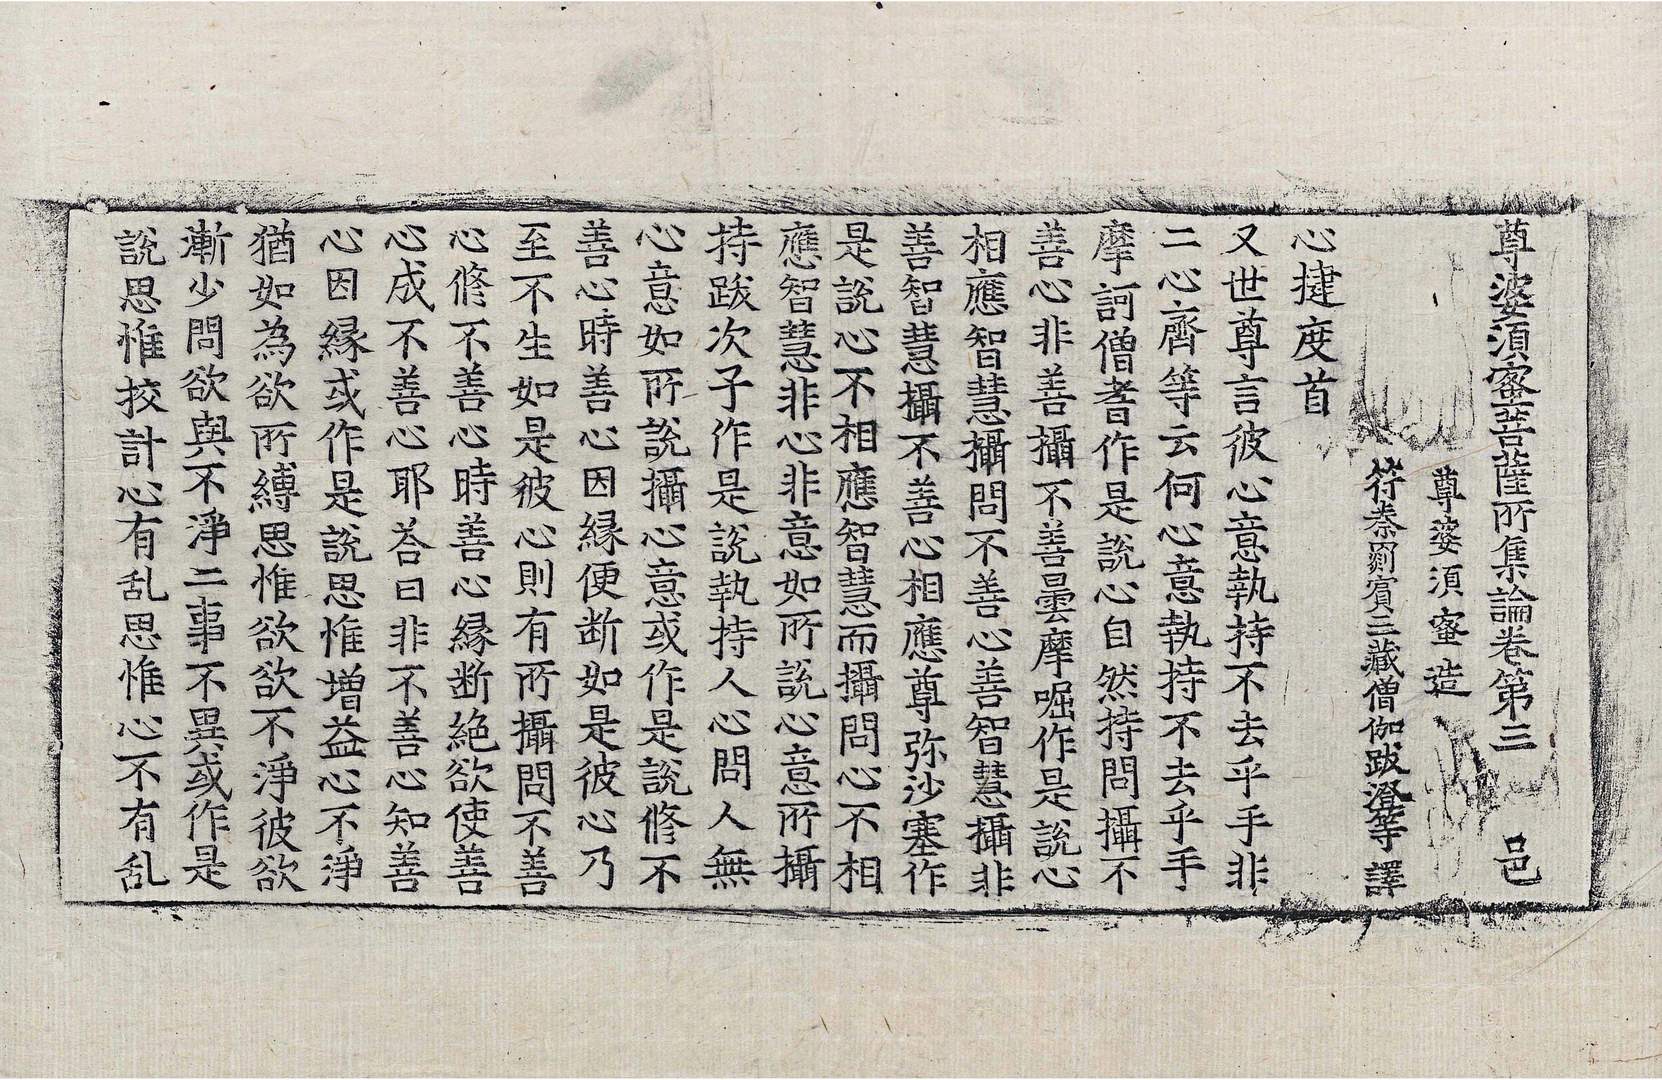 尊婆須蜜菩薩所集論卷第三 邑
尊婆須蜜造
符秦罽賓三藏僧伽跋澄等譯
心揵度首
又世尊言彼心意執持不去乎手非
二心齊等云何心意執持不去乎手
摩訶僧耆作是說心自然持問攝不
善心非善攝不善曇摩崛作是說心
相應智慧攝問不善心善智慧攝非
善智慧攝不善心相應尊弥沙塞作
是說心不相應智慧而攝問心不相
應智慧非心非意如所說心意所攝
持跋次子作是說執持人心問人無
心意如所說攝心意或作是說修不
善心時善心因縁便断如是彼心乃
至不生如是彼心則有所攝問不善
心修不善心時善心縁断絶欲使善
心成不善心耶荅曰非不善心知善
心因縁或作是說思惟增益心不淨
猶如為欲所縛思惟欲欲不淨彼欲
漸少問欲與不淨二事不異或作是
說思惟挍計心有乱思惟心不有乱